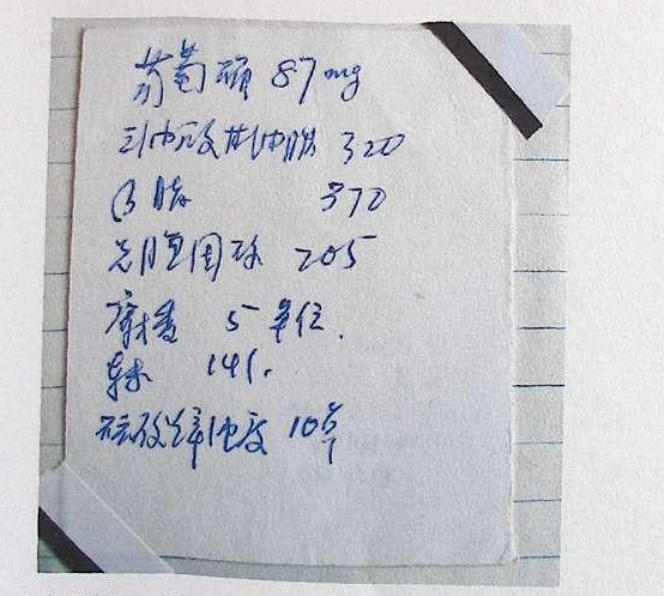 葡萄糖 87mg
三油酸甘油脂 320
β脂 370
总胆固醇 205
麝浊 5单位.
141.
硫酸锌浊度 10